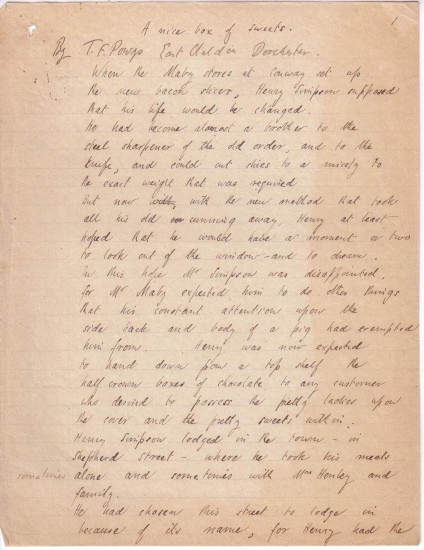 1
A nice box of sweets.
By T. F. Powys East Chaldon Dorchester.
When the Maby stores at Conway set up
the new bacon slicer, Henry Simpson supposed
that his life would be changed.
He had become almost a brother to the
steel sharpener of the old order, and to the
knife, and could cut slices to a nicety to
the exact weight that was required
But now with the new method that took
all his old cunning away. Henry at least
hoped that he would have a moment or two
to look out of the window - and to dream.
In this hope Mr Simpson was disappointed.
for Mr Maby expected him to do other things
that his constant attention upon the
side back and body of a pig had exempted
him from. Henry was now expected
to hand down from a top shelf the
half crown boxes of chocolate to any customer
who desired to possess the pretty ladies upon
the cover and the pretty sweets within.
Henry Simpson lodged in the town - in
Shepherd street - where he took his meals
sometimes alone and sometimes with Mrs Henley and
family.
He had chosen this street to lodge in
because of its name, for Henry had the